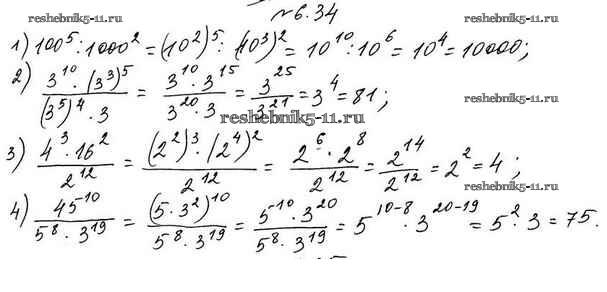 №6.34
reshebnik5-11.ru
1) 100⁵ : 1000² = (10²)⁵ : (10³)² = 10¹⁰ : 10⁶ = 10⁴ = 10000;
2) (3¹⁰ · (3³)⁵) / ((3⁵)⁴ · 3) = (3¹⁰ · 3¹⁵) / (3²⁰ · 3) = 3²⁵ / 3²¹ = 3⁴ = 81;
reshebnik5-11.ru
reshebnik5-11.ru
3) (4³ · 16²) / 2¹² = ((2²)³ · (2⁴)²) / 2¹² = (2⁶ · 2⁸) / 2¹² = 2¹⁴ / 2¹² = 2² = 4;
reshebnik5-11.ru
4) 45¹⁰ / (5⁸ · 3¹⁹) = (5 · 3²)¹⁰ / (5⁸ · 3¹⁹) = (5¹⁰ · 3²⁰) / (5⁸ · 3¹⁹) = 5¹⁰⁻⁸ · 3²⁰⁻¹⁹ = 5² · 3 = 75.
reshebnik5-11.ru